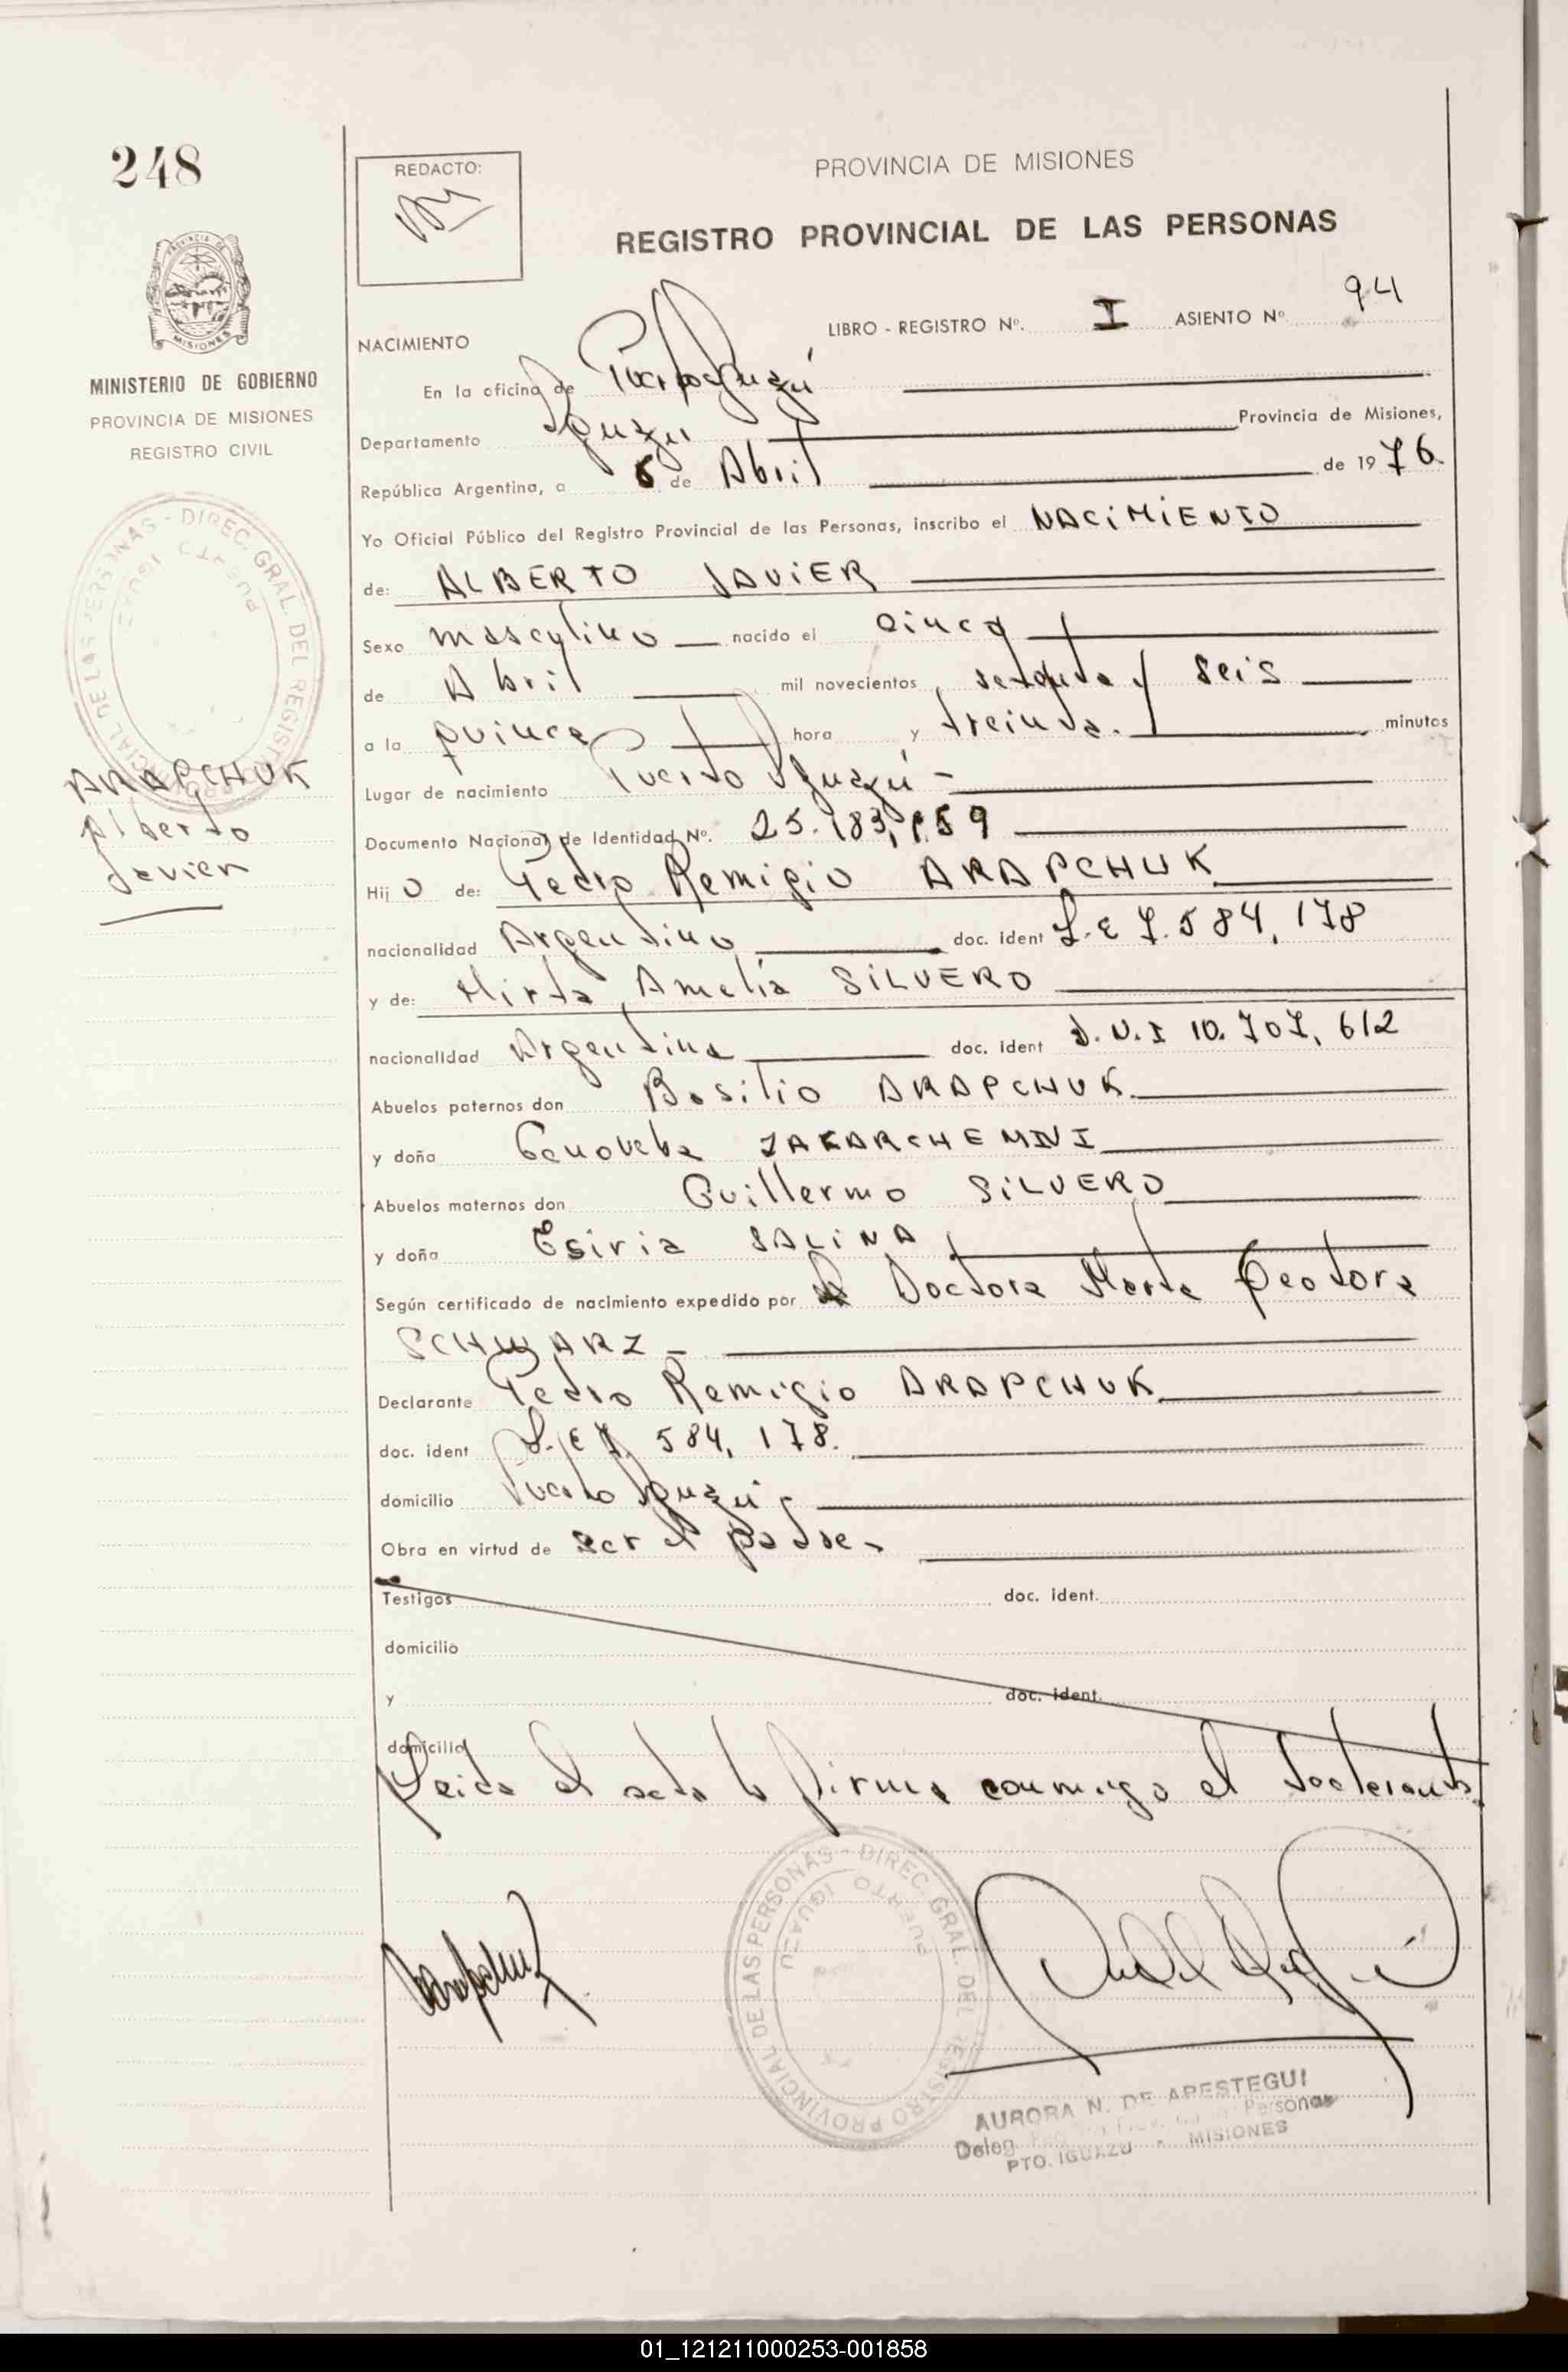 248
REDACTO:
PROVINCIA DE MISIONES
REGISTRO PROVINCIAL DE LAS PERSONAS
MINISTERIO DE GOBIERNO
PROVINCIA DE MISIONES
REGISTRO CIVIL
ARAPCHUK
Alberto
Javier
NACIMIENTO
LIBRO - REGISTRO Nº. I ASIENTO Nº 94
En la oficina de Puerto Iguazú
Departamento Iguazu Provincia de Misiones,
República Argentina, a 6 de Abril de 1976.
Yo Oficial Público del Registro Provincial de las Personas, inscribo el NACIMIENTO
de: ALBERTO JAVIER
Sexo masculino nacido el cinco
de Abril mil novecientos setenta y seis
a la quince hora y treinta. minutos
Lugar de nacimiento Puerto Iguazú -
Documento Nacional de Identidad Nº. 25.183,
Hijo de: Pedro Remigio ARAPCHUK
nacionalidad Argentino doc. ident L.E 7.584,178
y de: Mirta Amelia SILVERO
nacionalidad Argentina doc. ident D.N.I 10.707,612
Abuelos paternos don Basilio ARAPCHUK
y doña Genoveba
Abuelos maternos don Guillermo SILVERO
y doña Esiria SALINA
Según certificado de nacimiento expedido por la Doctora Marta Teodora
SCHWARZ -
Declarante Pedro Remigio ARAPCHUK
doc. ident L.E 7. 584,178.
domicilio Puerto Iguazú -
Obra en virtud de ser el padre -
Testigos doc. ident.
domicilio
y doc. ident.
domicilio
Leida el acta la firma conmigo el declarante
DIREC. GRAL. DEL REGISTRO PROVINCIAL DE LAS PERSONAS -
PUERTO IGUAZU
AURORA N. DE APESTEGUI
Deleg. Personas
PTO. IGUAZU - MISIONES
01_121211000253-001858